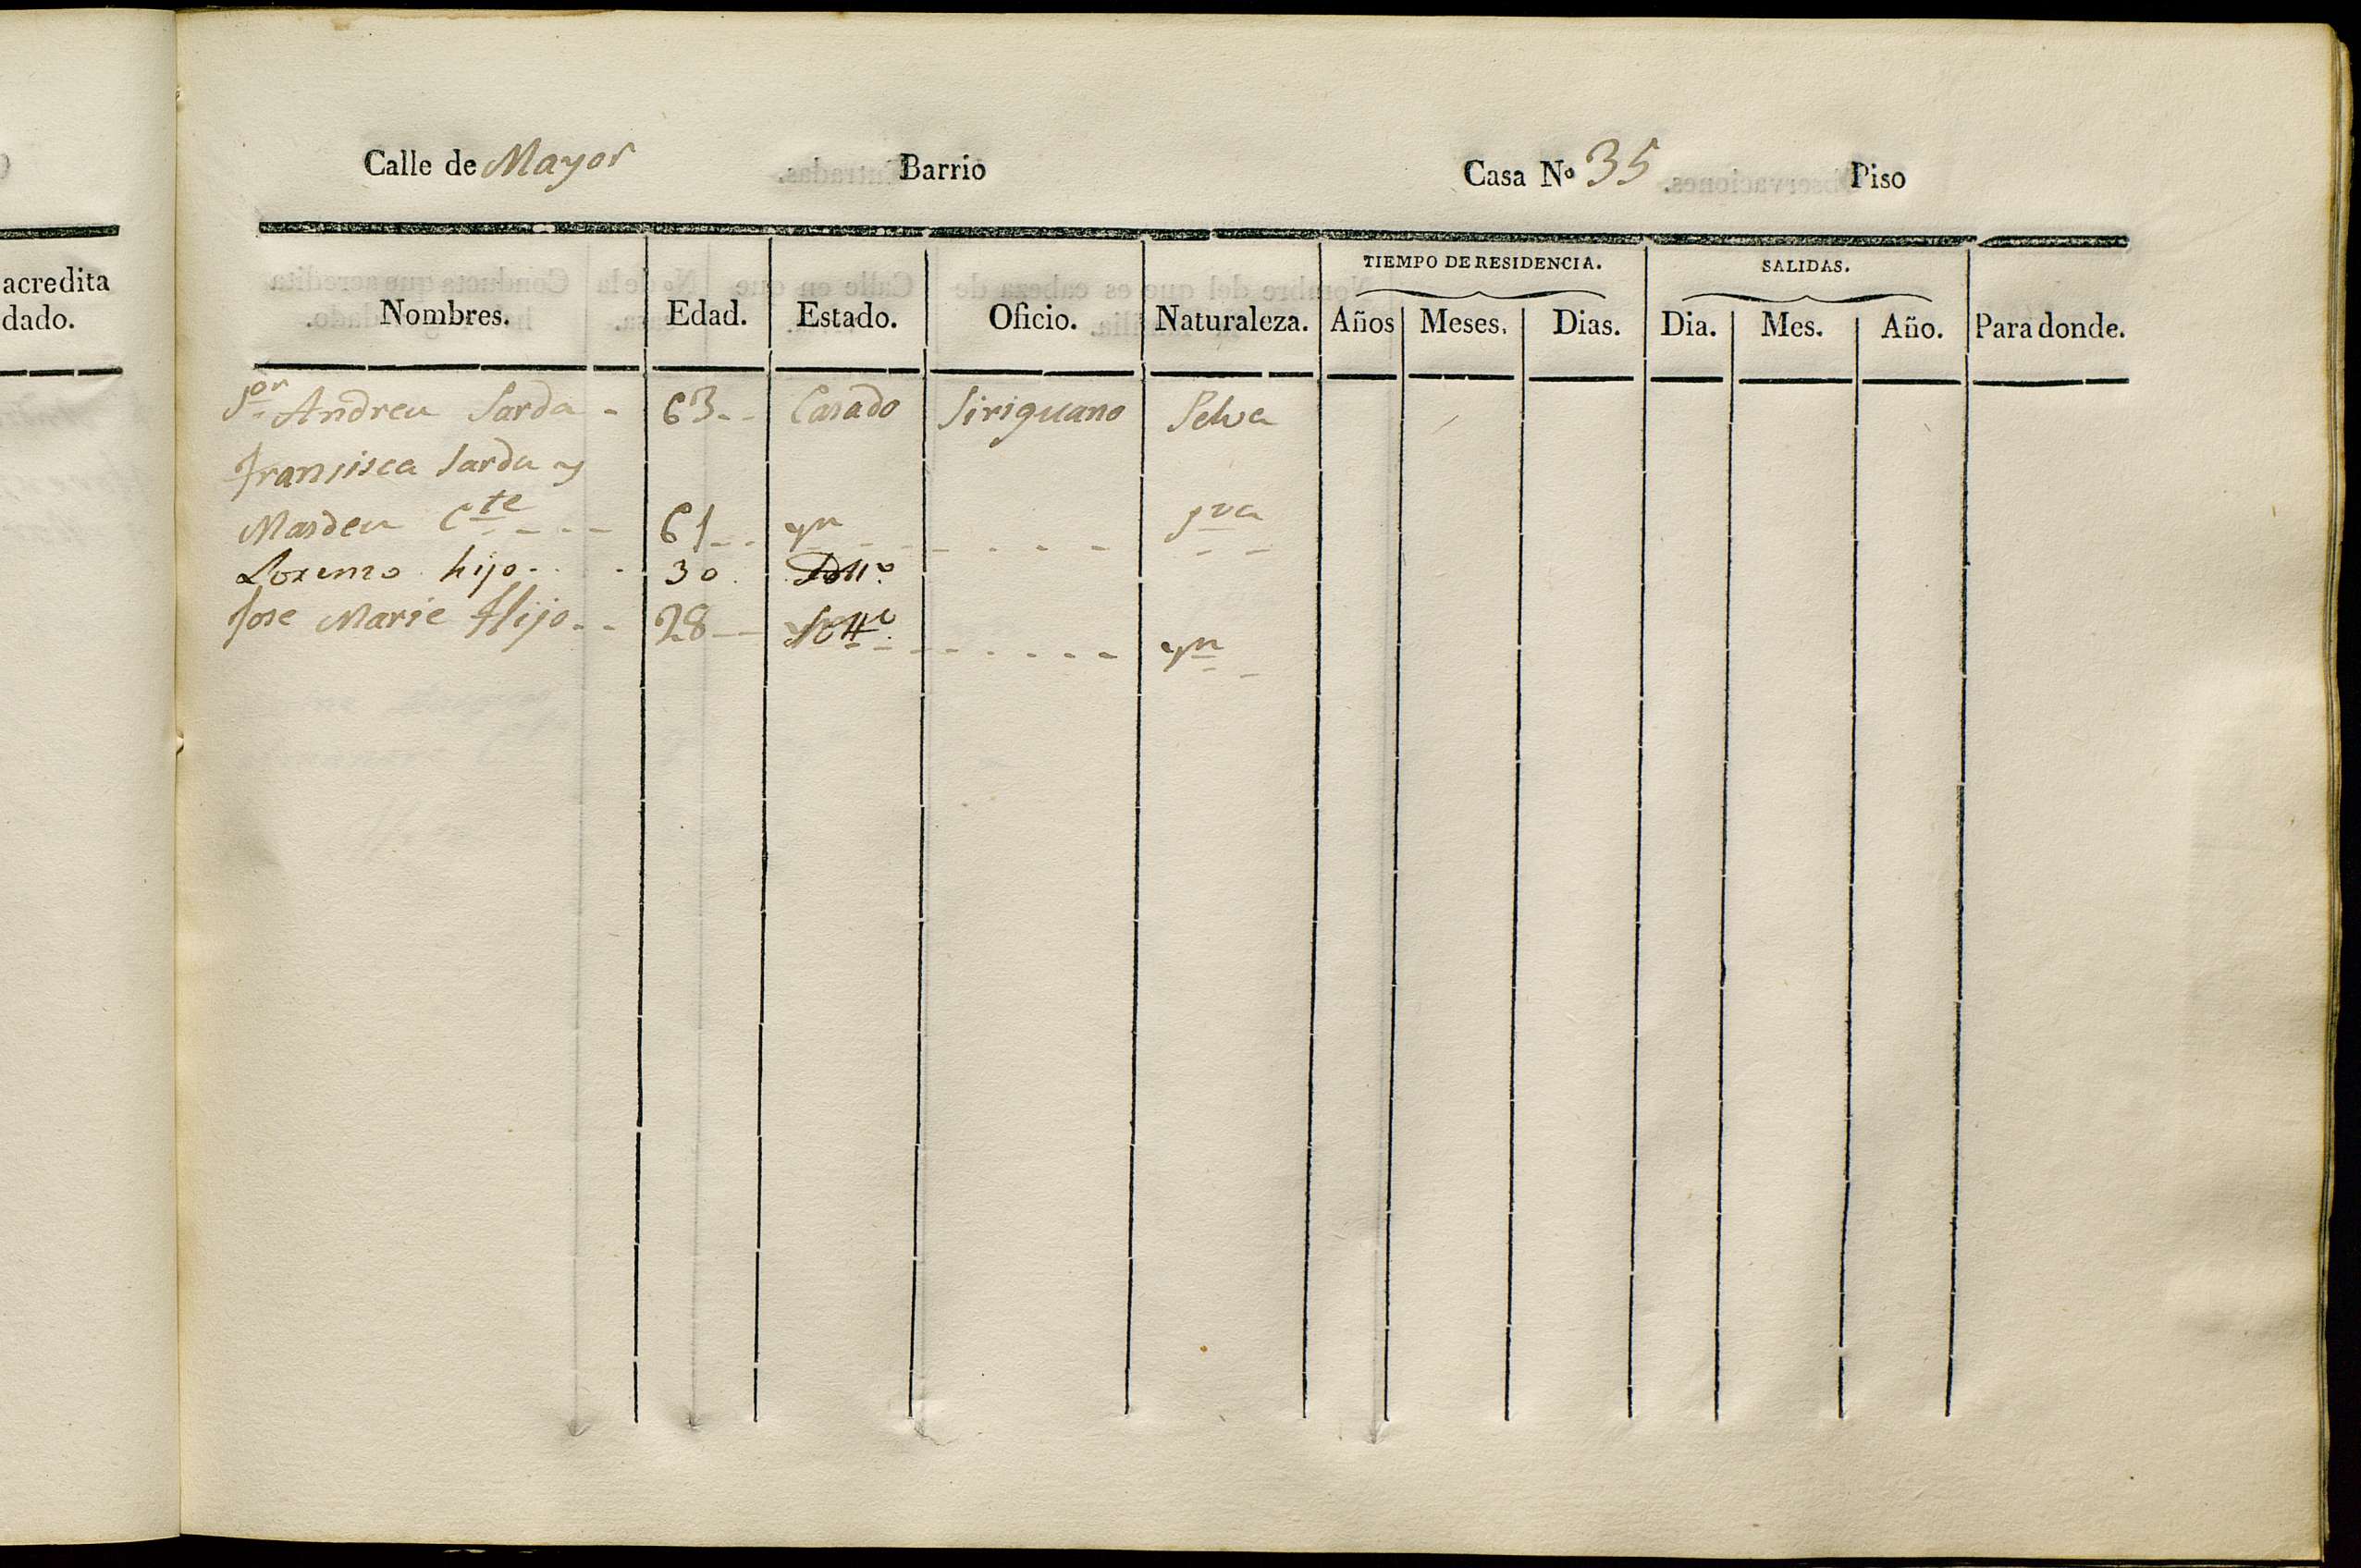 acredita
dado.
Calle de Mayor Barrio Casa Nº 35 Piso
TIEMPO DE RESIDENCIA. SALIDAS.
Nombres. Edad. Estado. Oficio. Naturaleza. Años Meses. Dias. Dia. Mes. Año. Para donde.
Sor Andreu Sarda - 63 - - Casado Siriguano Selva
Fransisca Sarda y
Masdeu Cte - - - 61 - - yn - - - - - - Sva - -
Lorenso hijo - - 30 Solto
Jose Marie Hijo - - 28 - Solto - - - - - - yn - -